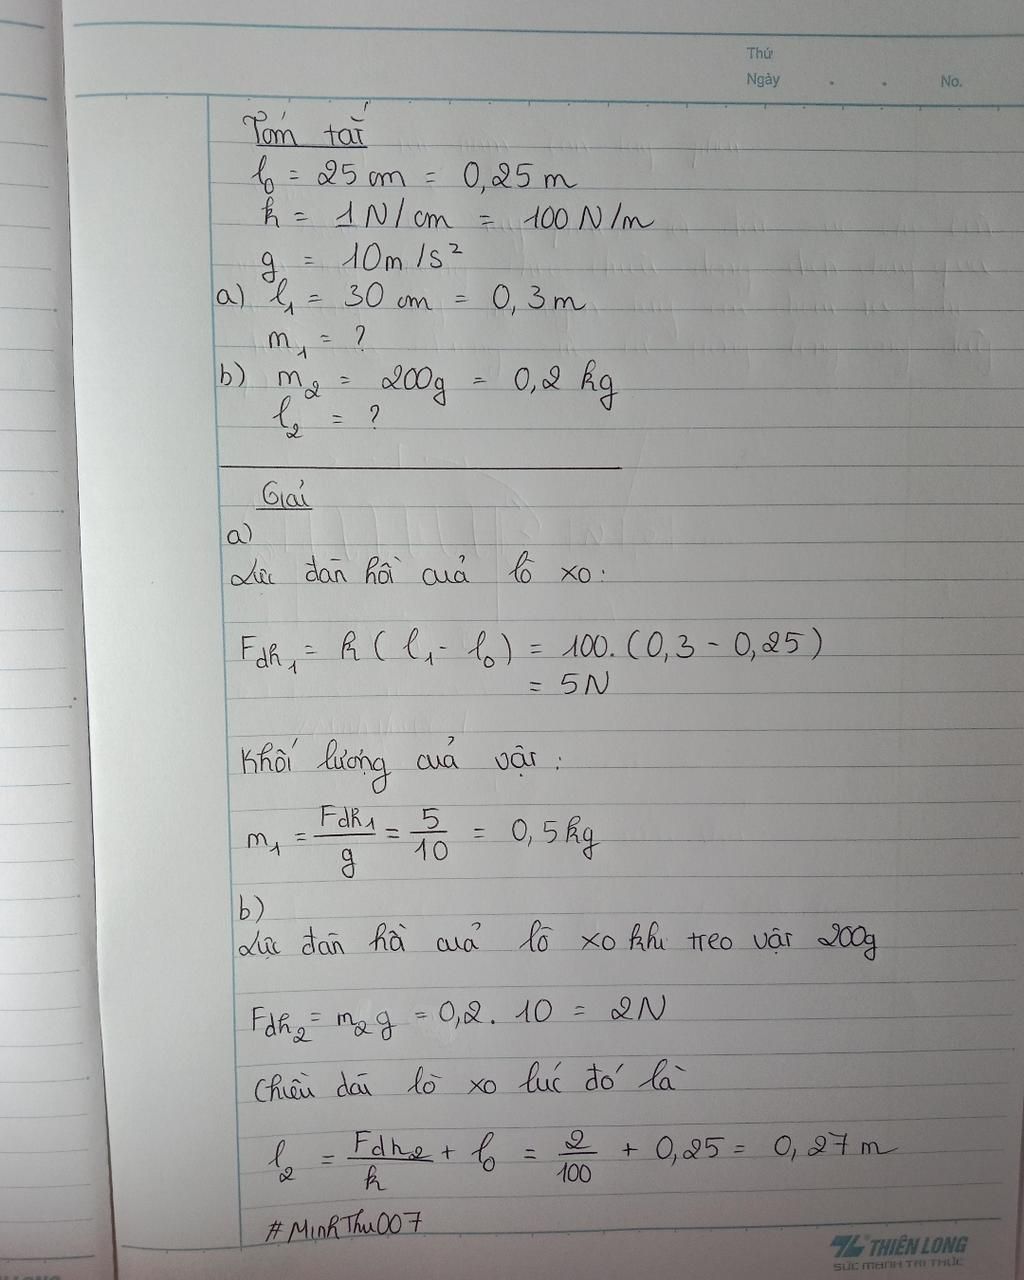 Thứ
Ngày . . No.
Tóm tắt
l₀ = 25 cm = 0,25 m
k = 1 N/cm = 100 N/m
g = 10 m/s²
a) l₁ = 30 cm = 0,3 m
m₁ = ?
b) m₂ = 200g = 0,2 kg
l₂ = ?
Giải
a)
Lực đàn hồi của lò xo:
Fđh₁ = k ( l₁ - l₀ ) = 100. ( 0,3 - 0,25 )
= 5N
Khối lượng của vật :
m₁ = Fđh₁/g = 5/10 = 0,5 kg
b)
Lực đàn hồi của lò xo khi treo vật 200g
Fđh₂ = m₂g = 0,2 . 10 = 2N
Chiều dài lò xo lúc đó là
l₂ = Fđh₂/k + l₀ = 2/100 + 0,25 = 0,27 m
#MinhThu007
THIÊN LONG
SỨC MẠNH TRI THỨC